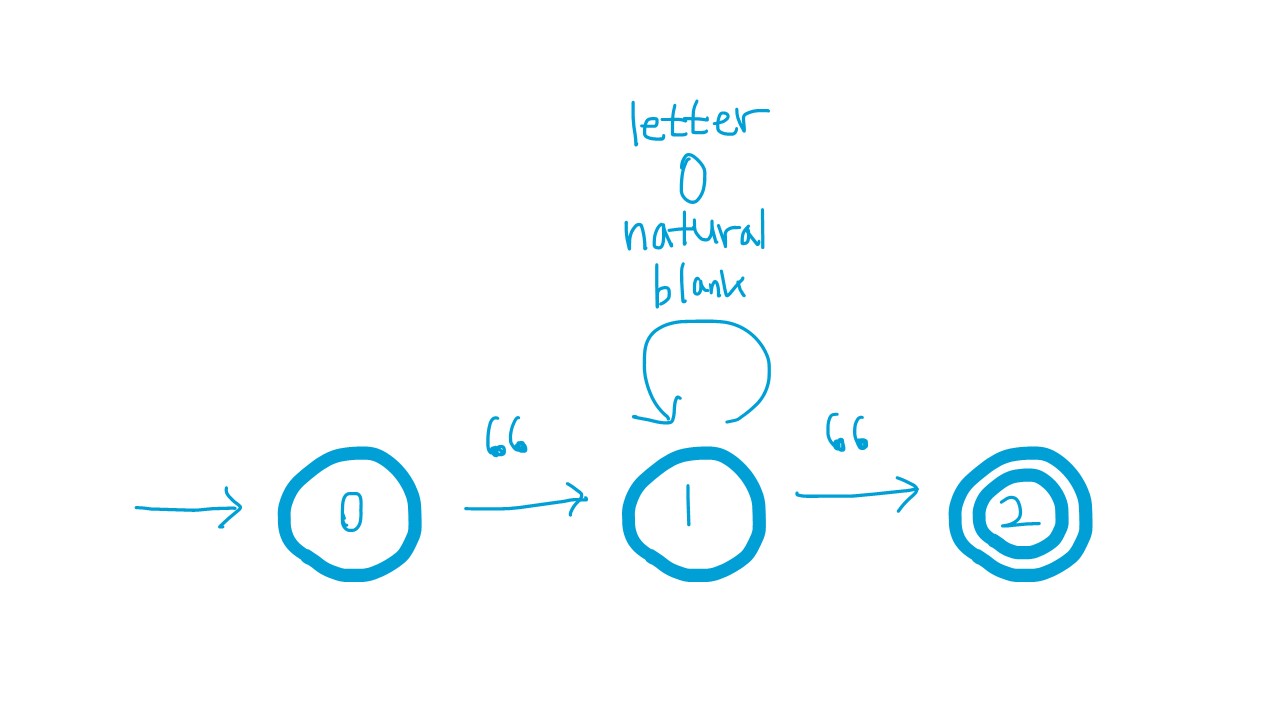 letter
0
natural
blank
“ “
0 1 2